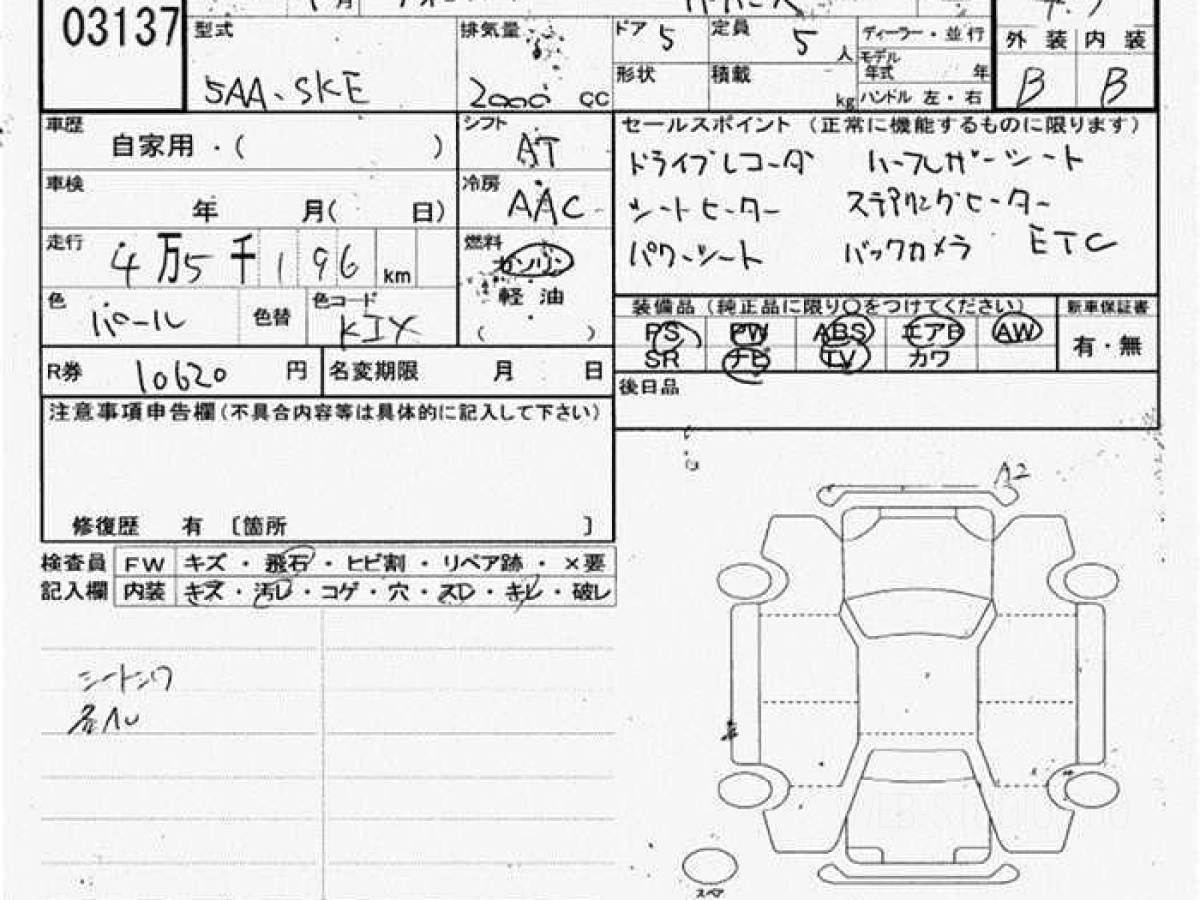 03137 型式 排気量 ドア 5 定員 5 人 ディーラー・並行 外装 内装
モデル年式 年
5AA-SKE 2000 cc 形状 積載 kg ハンドル 左・右 B B
車歴 自家用・( ) シフト AT セールスポイント (正常に機能するものに限ります)
ドライブレコーダ ハーフレザーシート
車検 年 月( 日) 冷房 AAC シートヒーター ステアリングヒーター
走行 4万5千196 km 燃料 ガソリン パワーシート バックカメラ ETC
軽油
( )
色 パール 色替 色コード 装備品 (純正品に限り○をつけてください) 新車保証書
PS PW ABS エアB AW 有・無
SR ナビ TV カワ
R券 10620 円 名変期限 月 日 後日品
注意事項申告欄(不具合内容等は具体的に記入して下さい)
A2
修復歴 有 〔箇所 〕
検査員 FW キズ・飛石・ヒビ割・リペア跡・×要
記入欄 内装 キズ・汚レ・コゲ・穴・スレ・キレ・破レ
シートシワ
スペア